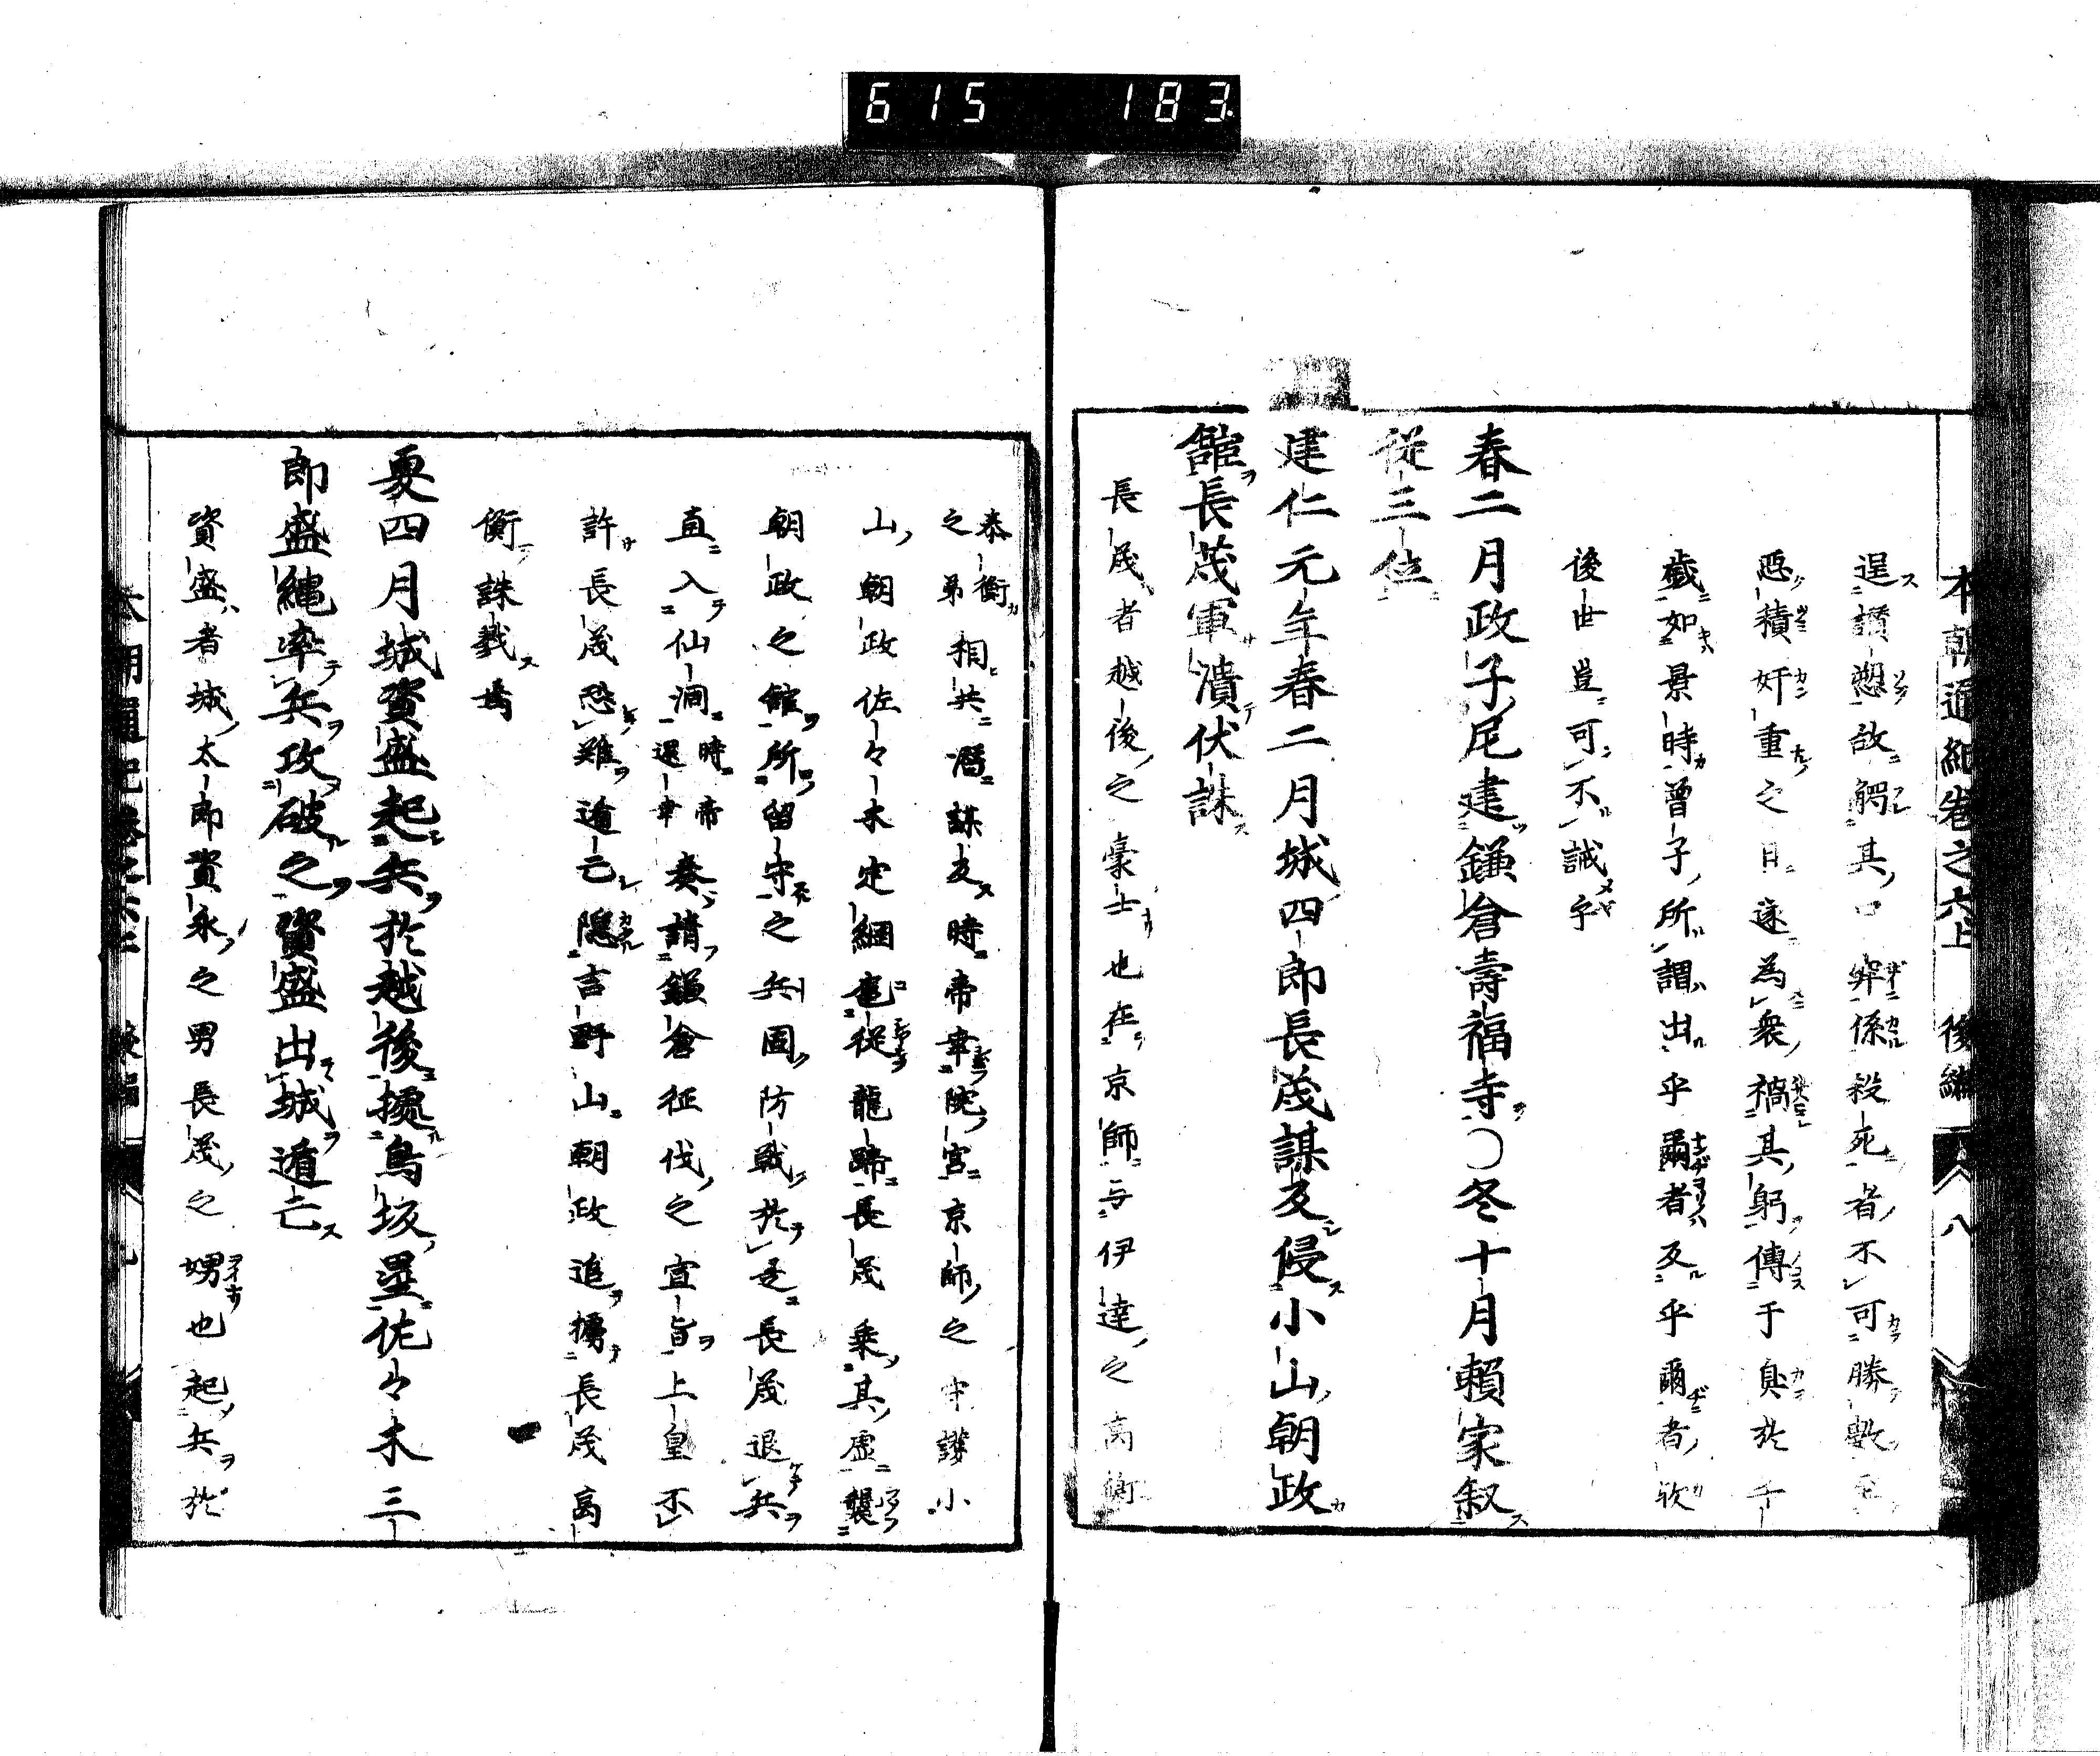 615 183
本朝通紀卷之六上 後編 八
逞讃愬故觸其口罪係殺死者不可勝數至
惡積奸重之日遂為衆禍其躬傳于臭於千
歳如景時曾子所謂出乎爾者反乎爾者歟
後世豈可不誡乎
春二月政子尼建鎌倉壽福寺○冬十月賴家叙
從三位
建仁元年春二月城四郎長茂謀反侵小山朝政
館長茂軍潰伏誅
長茂者越後之豪士也在京師与伊達之高衡
泰衡之弟相共潛謀反時帝幸院宮京師之守護小
山朝政佐々木定綱扈從龍蹄長茂乘其虛襲
朝政之館所留守之兵固防戰於是長茂退兵
直入仙洞時帝還幸奏請鎌倉征伐之宣旨上皇不
許長茂恐難遁亡隱吉野山朝政追捕長茂高
衡誅戮焉
夏四月城資盛起兵於越後擾鳥坂壘佐々木三
郎盛繩率兵攻破之資盛出城遁亡
資盛者城太郎資永之男長茂之甥也起兵於